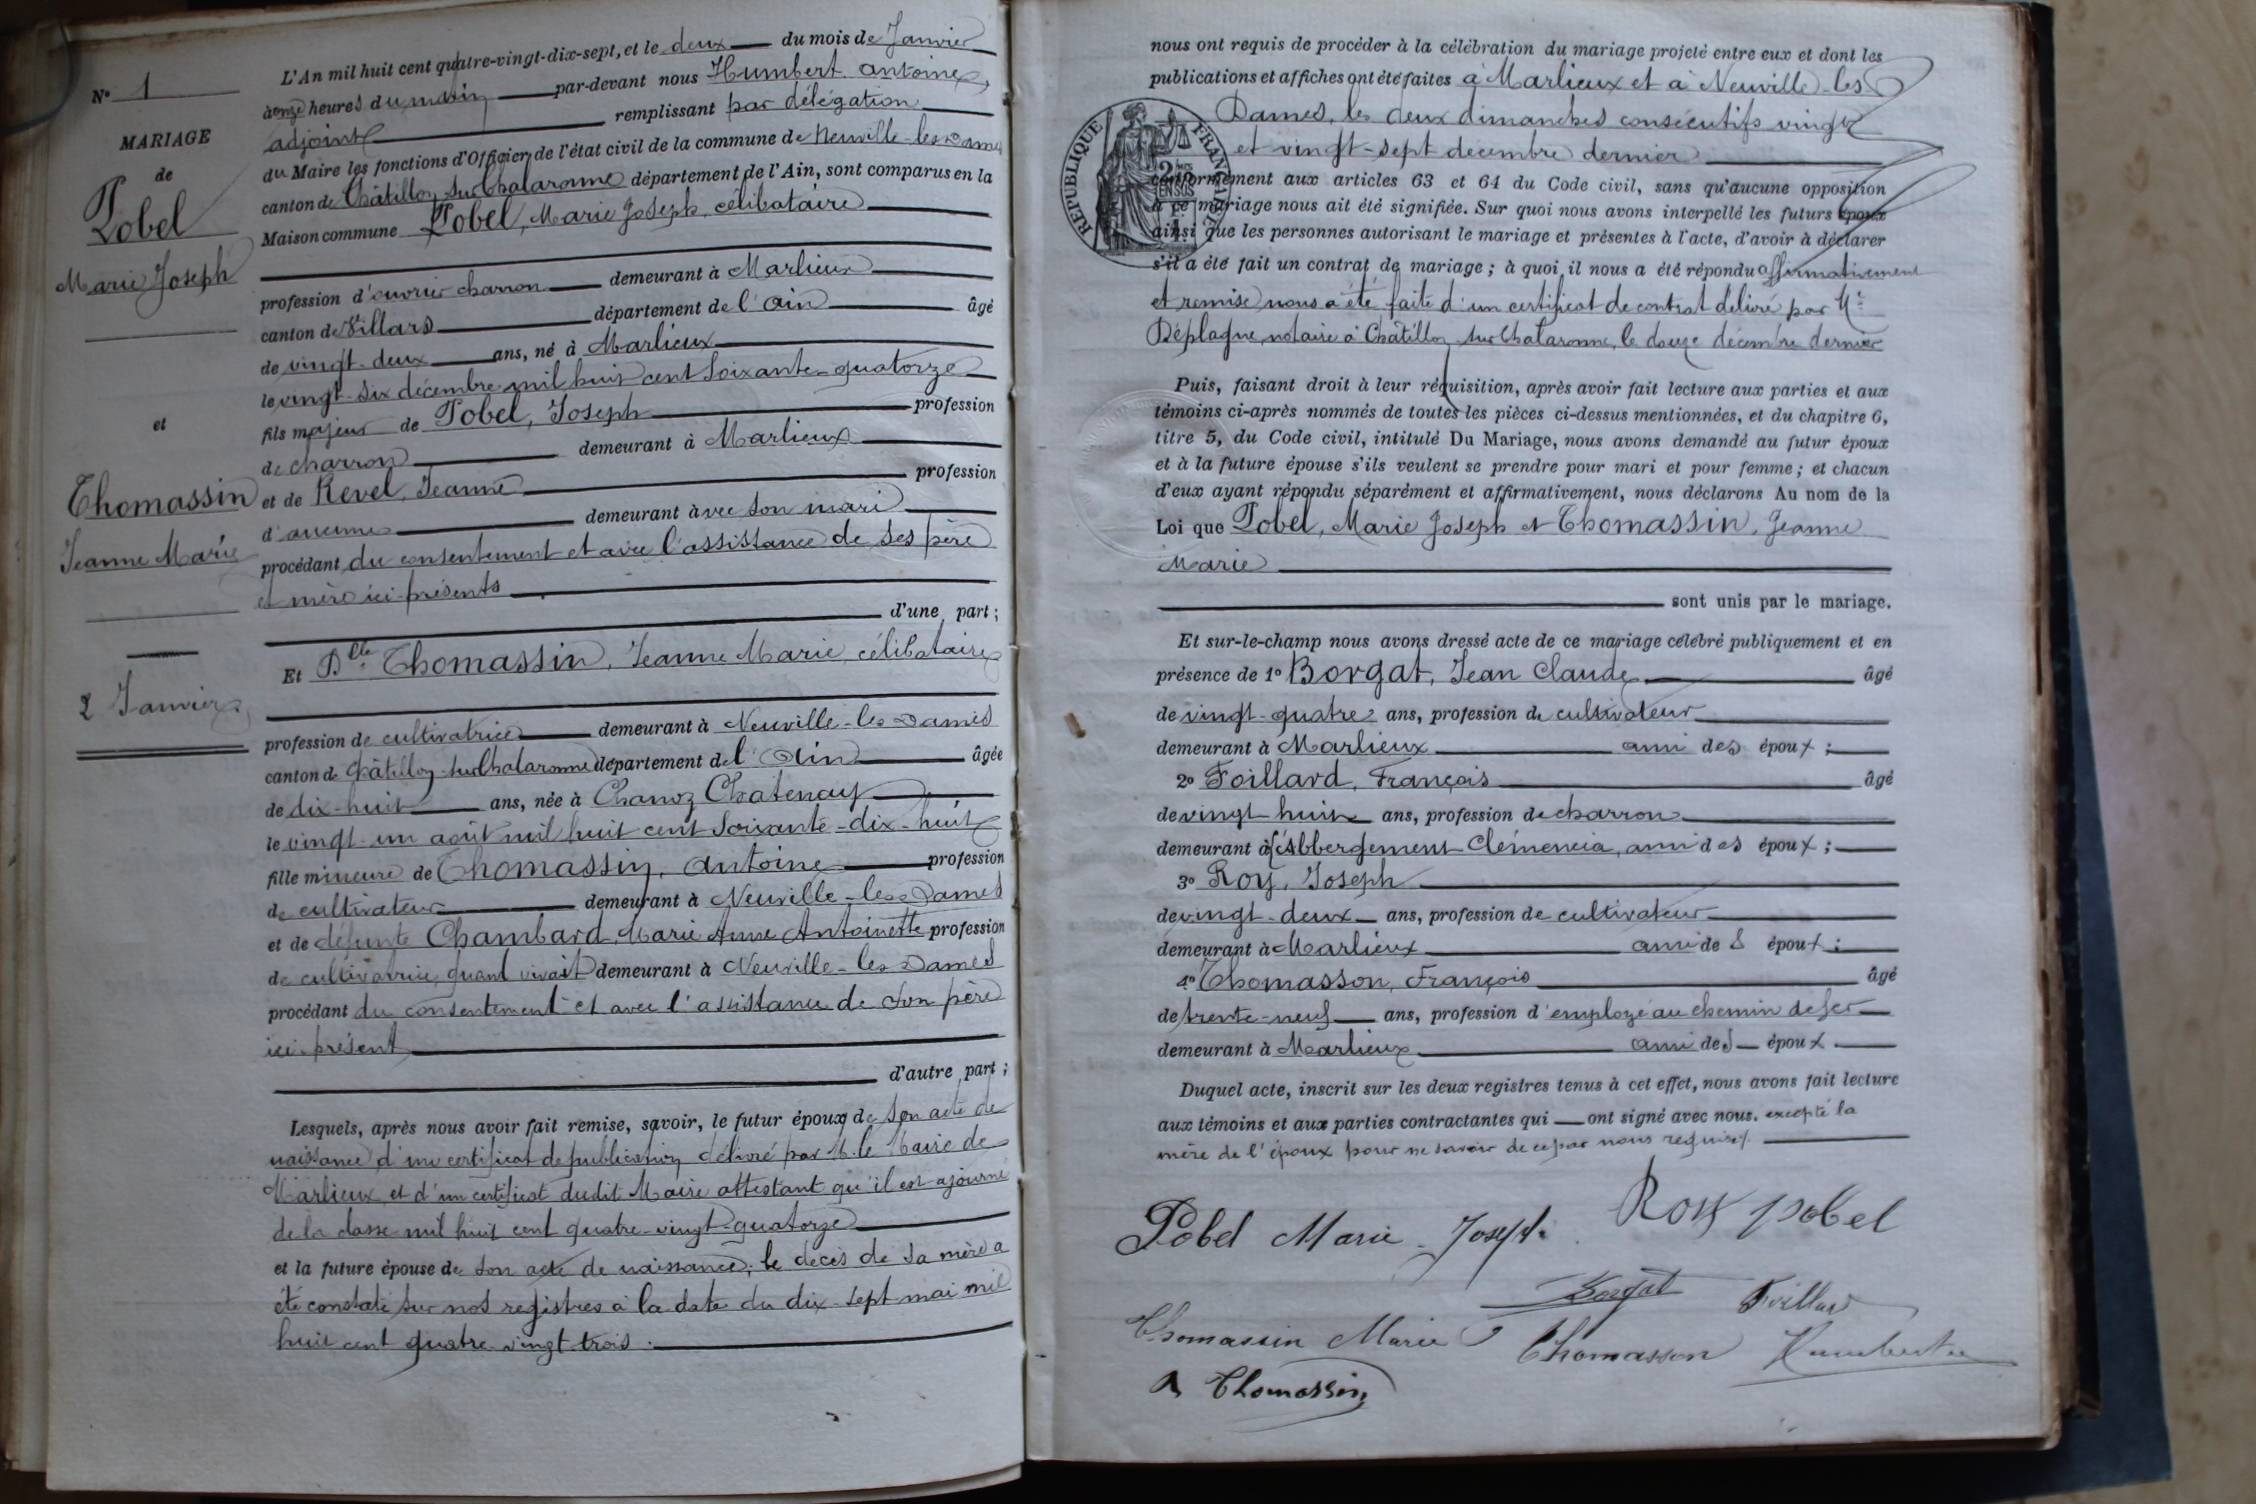 N° 1
MARIAGE
de
Pobel
Marie Joseph
et
Thomassin
Jeanne Marie
2 Janvier
L'An mil huit cent quatre-vingt-dix-sept, et le deux du mois de Janvier
à onze heures du matin par-devant nous Humbert antoine,
adjoint remplissant par délégation
du Maire les fonctions d'Officier de l'état civil de la commune de Neuville-les-Dames
canton de Châtillon sur Chalaronne département de l'Ain, sont comparus en la
Maison commune Pobel, Marie Joseph, célibataire
profession d'ouvrier charron demeurant à Marlieux
canton de Villars département de l'Ain âgé
de vingt-deux ans, né à Marlieux
le vingt-six décembre mil huit cent soixante-quatorze
fils majeur de Pobel, Joseph profession
de charron demeurant à Marlieux
et de Revel, Jeanne profession
d'aucune demeurant avec son mari
procédant du consentement et avec l'assistance de ses père
et mère ici présents
d'une part;
Et Dlle Thomassin, Jeanne Marie, célibataire
profession de cultivatrice demeurant à Neuville-les-Dames
canton de Châtillon-sur-Chalaronne département de l'Ain âgée
de dix-huit ans, née à Chanoz Chatenay
le vingt-un août mil huit cent soixante-dix-huit
fille mineure de Thomassin, Antoine profession
de cultivateur demeurant à Neuville-les-Dames
et de défunte Chambard, Marie Anne Antoinette profession
de cultivatrice, quand vivait demeurant à Neuville-les-Dames
procédant du consentement et avec l'assistance de son père
ici-présent
d'autre part;
Lesquels, après nous avoir fait remise, savoir, le futur époux de son acte de
naissance, d'un certificat de publication délivré par M. le Maire de
Marlieux et d'un certificat dudit Maire attestant qu'il est ajourné
de la classe mil huit cent quatre-vingt-quatorze
et la future épouse de son acte de naissance; le décès de sa mère a
été constaté sur nos registres à la date du dix-sept mai mil
huit cent quatre-vingt-trois.
nous ont requis de procéder à la célébration du mariage projeté entre eux et dont les
publications et affiches ont été faites à Marlieux et à Neuville-les
Dames, les deux dimanches consécutifs vingt
et vingt-sept décembre dernier
RÉPUBLIQUE FRANÇAISE
conformément aux articles 63 et 64 du Code civil, sans qu'aucune opposition
à ce mariage nous ait été signifiée. Sur quoi nous avons interpellé les futurs époux
ainsi que les personnes autorisant le mariage et présentes à l'acte, d'avoir à déclarer
s'il a été fait un contrat de mariage; à quoi il nous a été répondu affirmativement
et remise nous a été faite d'un certificat de contrat délivré par Me
Déplagne, notaire à Châtillon-sur-Chalaronne, le douze décembre dernier
Puis, faisant droit à leur réquisition, après avoir fait lecture aux parties et aux
témoins ci-après nommés de toutes les pièces ci-dessus mentionnées, et du chapitre 6,
titre 5, du Code civil, intitulé Du Mariage, nous avons demandé au futur époux
et à la future épouse s'ils veulent se prendre pour mari et pour femme; et chacun
d'eux ayant répondu séparément et affirmativement, nous déclarons Au nom de la
Loi que Pobel, Marie Joseph et Thomassin, Jeanne
Marie
sont unis par le mariage.
Et sur-le-champ nous avons dressé acte de ce mariage célébré publiquement et en
présence de 1° Borgat, Jean Claude âgé
de vingt-quatre ans, profession de cultivateur
demeurant à Marlieux ami des époux;
2° Foillard, François âgé
de vingt huit ans, profession de charron
demeurant à l'Abbergement-Clémencia, ami des époux;
3° Roy, Joseph
de vingt-deux ans, profession de cultivateur
demeurant à Marlieux ami des époux;
4° Thomasson, François âgé
de trente-neuf ans, profession d'employé au chemin de fer
demeurant à Marlieux ami des époux.
Duquel acte, inscrit sur les deux registres tenus à cet effet, nous avons fait lecture
aux témoins et aux parties contractantes qui ont signé avec nous. excepté la
mère de l'époux pour ne savoir de ce par nous requise.
Pobel Marie Joseph Roy pobel
Borgat Foillard
Thomassin Marie Thomasson Humbert
A Thomassin